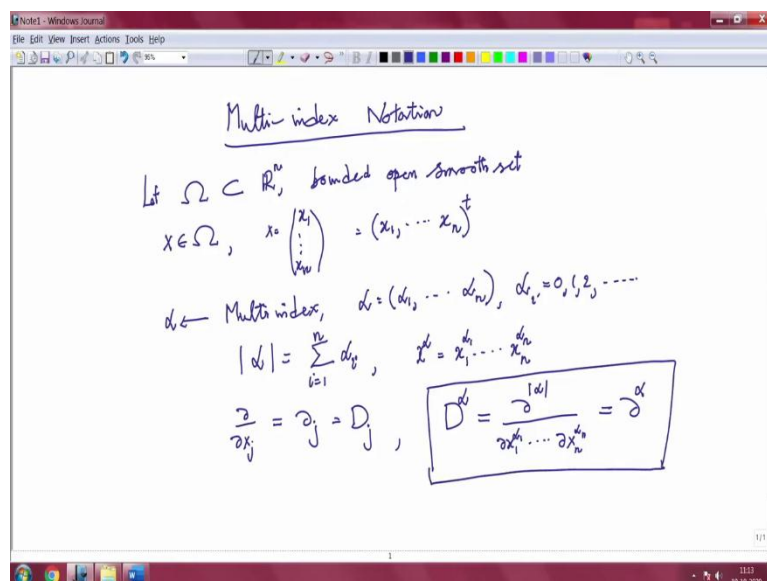 Note1 - Windows Journal
File Edit View Insert Actions Tools Help
Multi-index Notation
Let Ω ⊂ ℝⁿ, bounded open smooth set
x ∈ Ω, x = (x₁ ⋮ xₙ) = (x₁, ... xₙ)ᵗ
α ← Multiindex, α = (α₁, ... αₙ), αᵢ = 0, 1, 2, .....
|α| = Σᵢ₌₁ⁿ αᵢ, x^α = x₁^α₁ .... xₙ^αₙ
∂/∂xⱼ = ∂ⱼ = Dⱼ, D^α = ∂^|α| / ∂x₁^α₁ .... ∂xₙ^αₙ = ∂^α
1/1
1
11:13